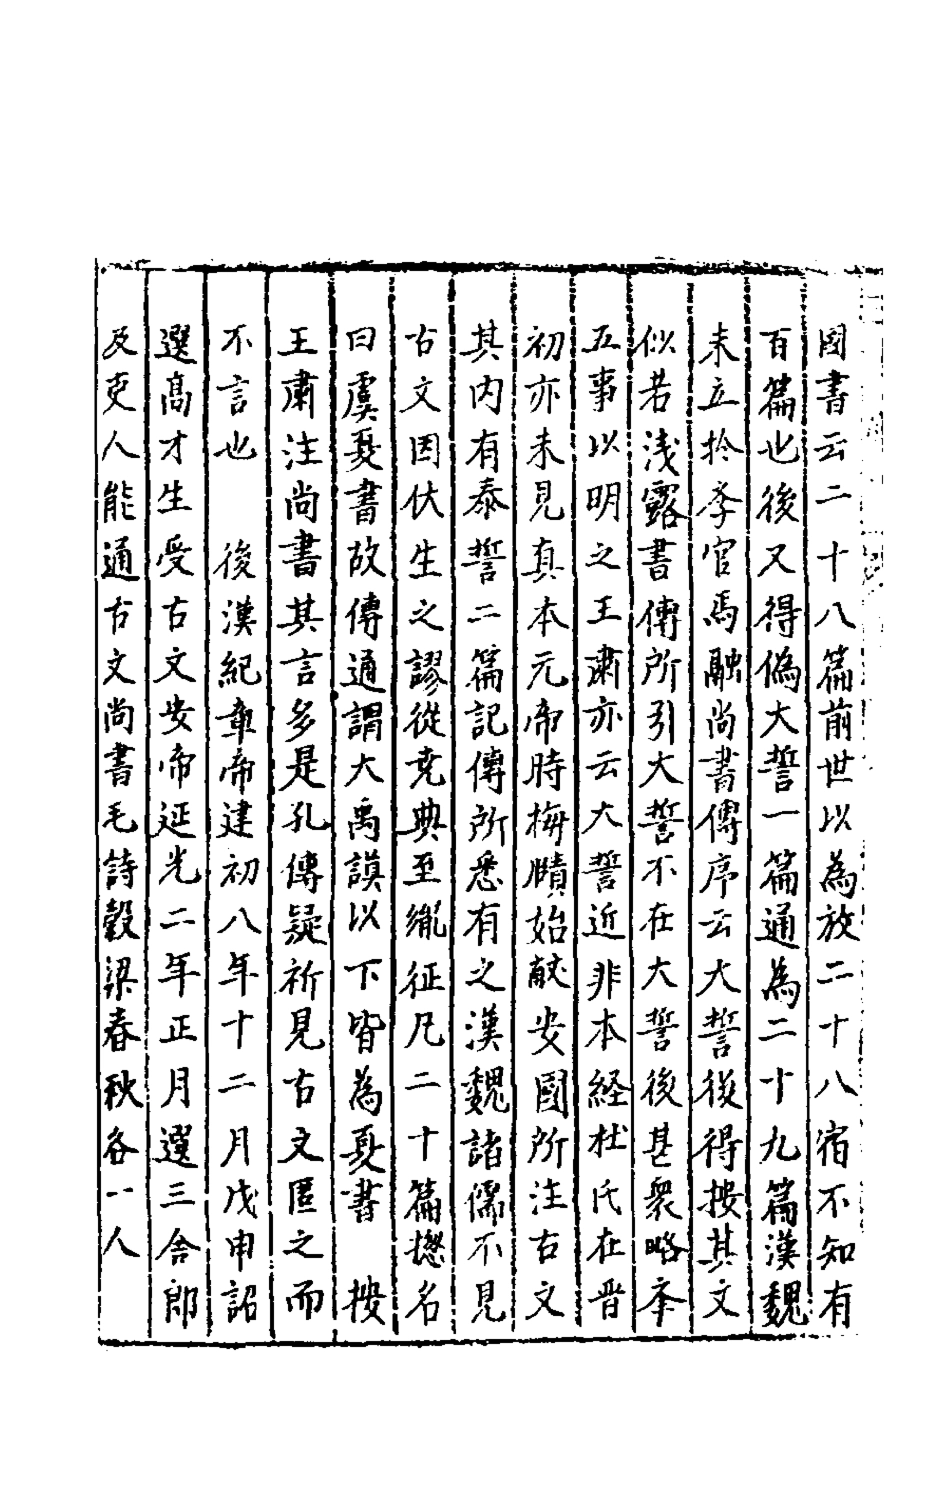 國書云二十八篇前世以為放二十八宿不知有
百篇也後又得偽大誓一篇通為二十九篇漢魏
未立於孝官馬融尚書傳序云大誓後得按其文
似若淺露書傳所引大誓不在大誓後甚衆略夲
五事以明之王肅亦云大誓近非本經杜氏在晋
初亦未見真本元帝時梅賾始献安國所注古文
其内有泰誓二篇記傳所悉有之漢魏諸儒不見
古文因伏生之謬從尭典至㣧征凡二十篇揔名
曰虞夏書故傳通謂大禹謨以下皆為夏書　按
王肅注尚書其言多是孔傳疑祈見古文匿之而
不言也　後漢紀章帝建初八年十二月戊申詔
選髙才生受古文安帝延光二年正月選三舍郎
及吏人能通古文尚書毛詩穀梁春秋各一人